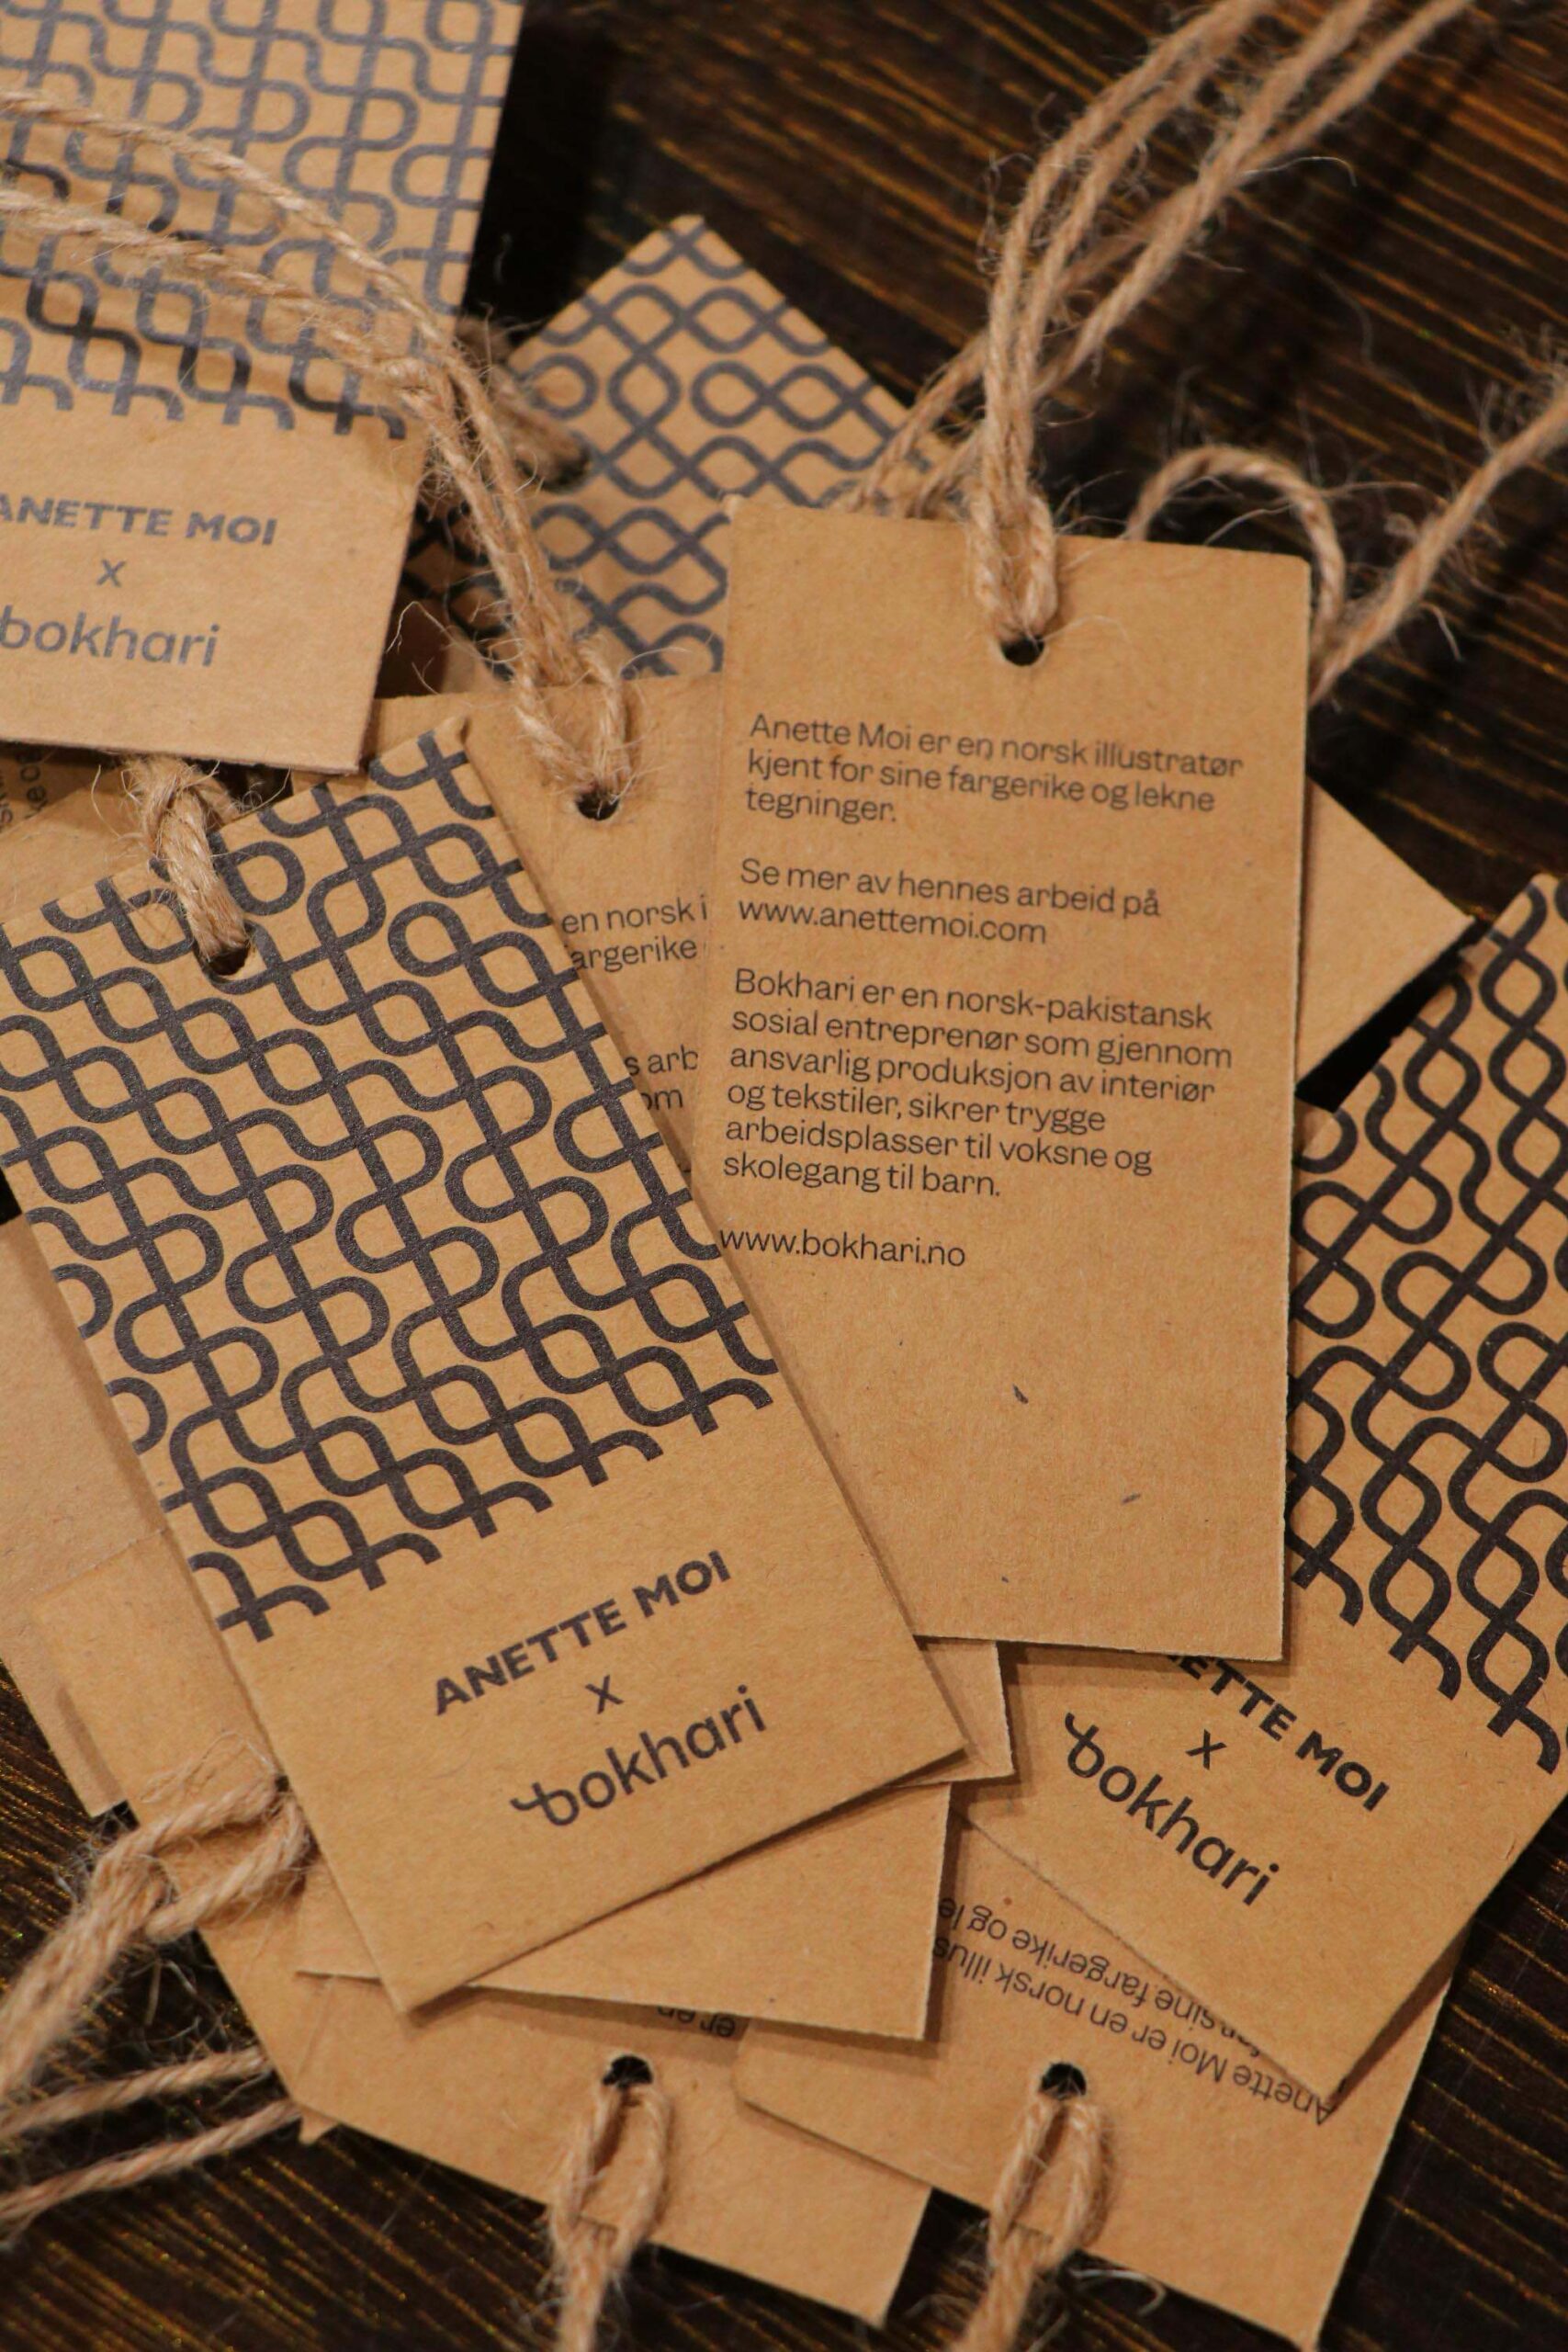 ANETTE MOI
x
bokhari
Anette Moi er en norsk illustratør
kjent for sine fargerike og lekne
tegninger.
Se mer av hennes arbeid på
www.anettemoi.com
Bokhari er en norsk-pakistansk
sosial entreprenør som gjennom
ansvarlig produksjon av interiør
og tekstiler, sikrer trygge
arbeidsplasser til voksne og
skolegang til barn.
www.bokhari.no
en norsk
fargerike
arb
om
ANETTE MOI
x
bokhari
MOI
x
bokhari
Anette Moi er en norsk
sine fargerike og
er en